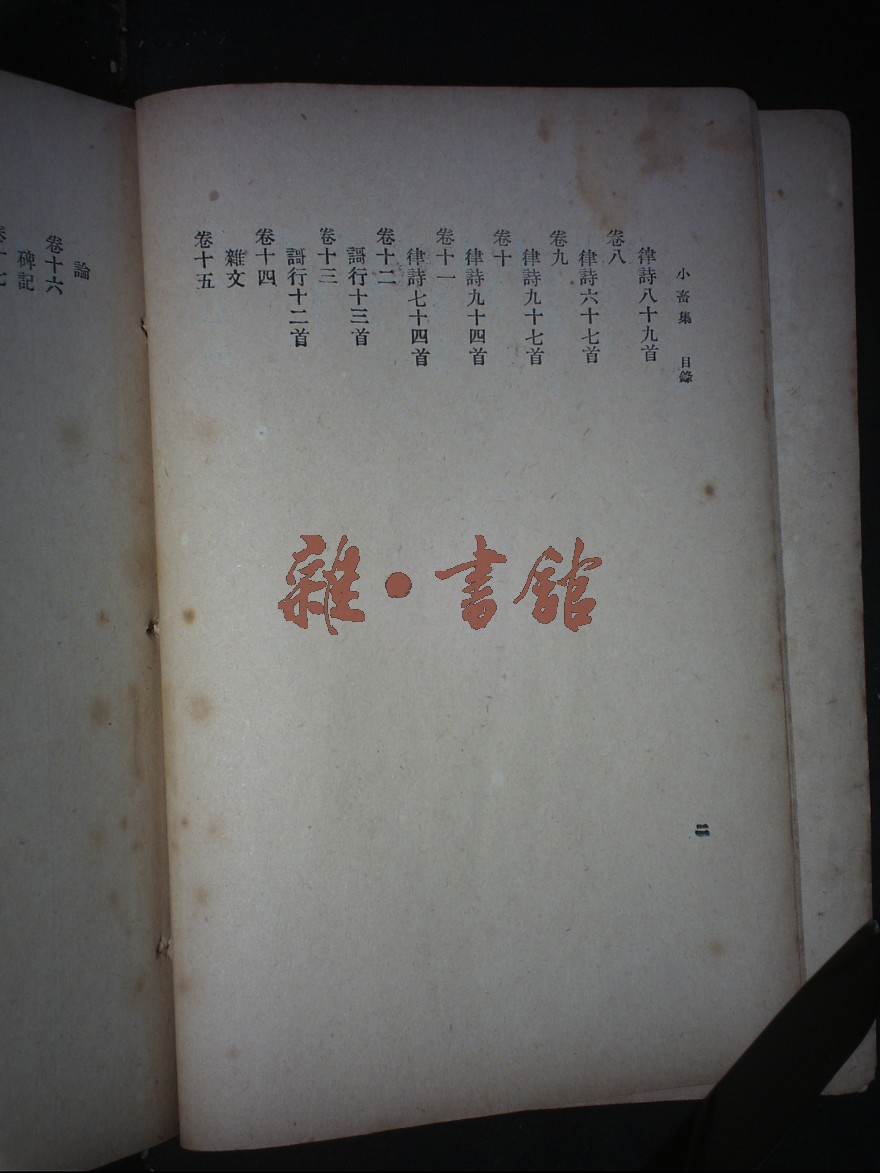 小畜集 目錄
律詩八十九首
卷八
律詩六十七首
卷九
律詩九十七首
卷十
律詩九十四首
卷十一
律詩七十四首
卷十二
謌行十三首
卷十三
謌行十二首
卷十四
雜文
卷十五
二
論
卷十六
碑記
卷十七
雜•書館